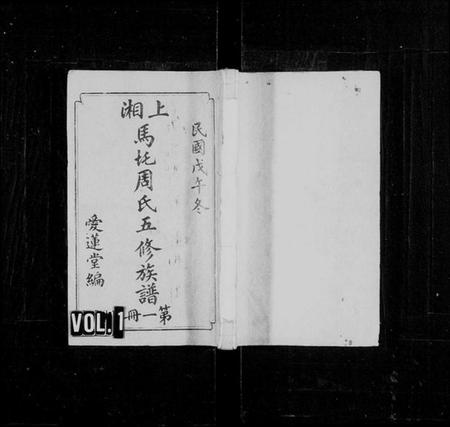 民國戊午冬
上湘
馬圫周氏五修族譜
第一冊
愛蓮堂編
VOL. 1